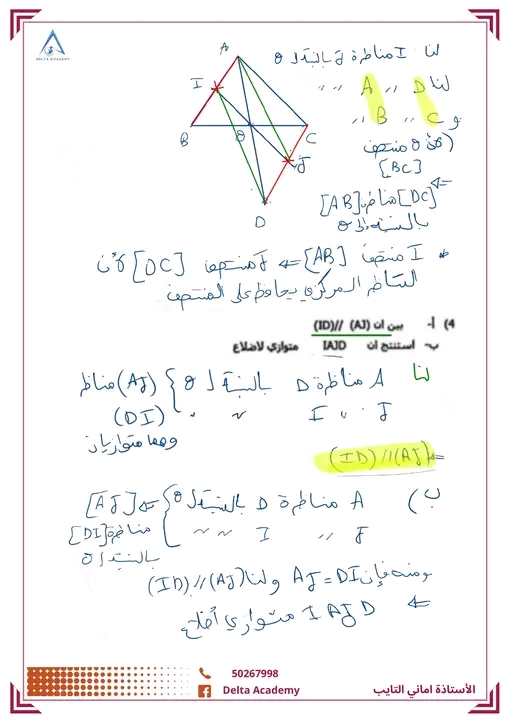 DELTA ACADEMY
A
I
B
O
C
J
D
لنا I مناظرة J بالنسبة ل O
لنا D " A " "
و C " B "
(لأن O منتصف
[BC]
⇐ [DC] مناظر [AB]
بالنسبة إلى O
* I منتصف [AB] ⇐ J منتصف [DC] لأن
التناظر المركزي يحافظ على المنتصف
4) أ- بين ان (AJ) //(ID)
ب- استنتج ان IAJD متوازي لاضلاع
لنا A مناظرة D بالنسبة ل O } (AJ) مناظر
J " I " " (DI)
وهما متوازيان
⇐ (ID) // (AJ)
ب) A مناظرة D بالنسبة ل O } ⇐ [AJ]
J " I " " مناظرة [DI]
بالنسبة ل O
ومنه فإن AJ = DI ولنا (ID) // (AJ)
⇐ IAJD متوازي أضلاع
50267998
Delta Academy
الأستاذة اماني التايب